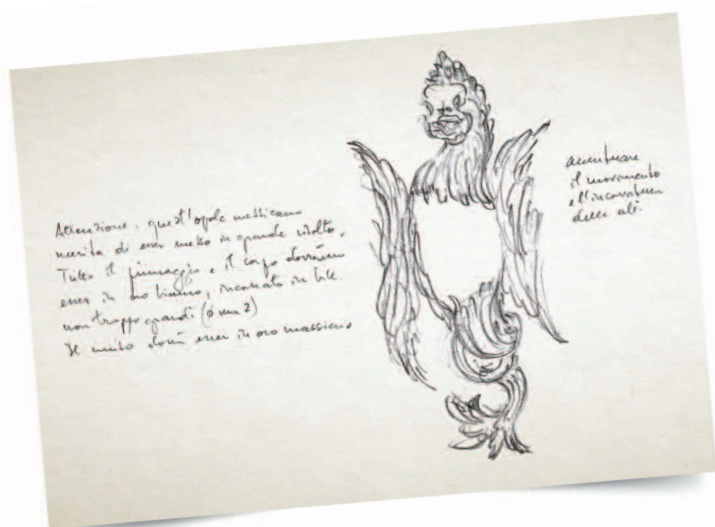 Attenzione: quest'opale messicano
merita di esser messo in grande risalto.
Tutto il piumaggio e il corpo dovranno
esser in oro bianco, incassato in
non troppo grandi (ø mm 2)
Il muso dovrà esser in oro massiccio
accentuare
il movimento
e l'incavatura
delle ali